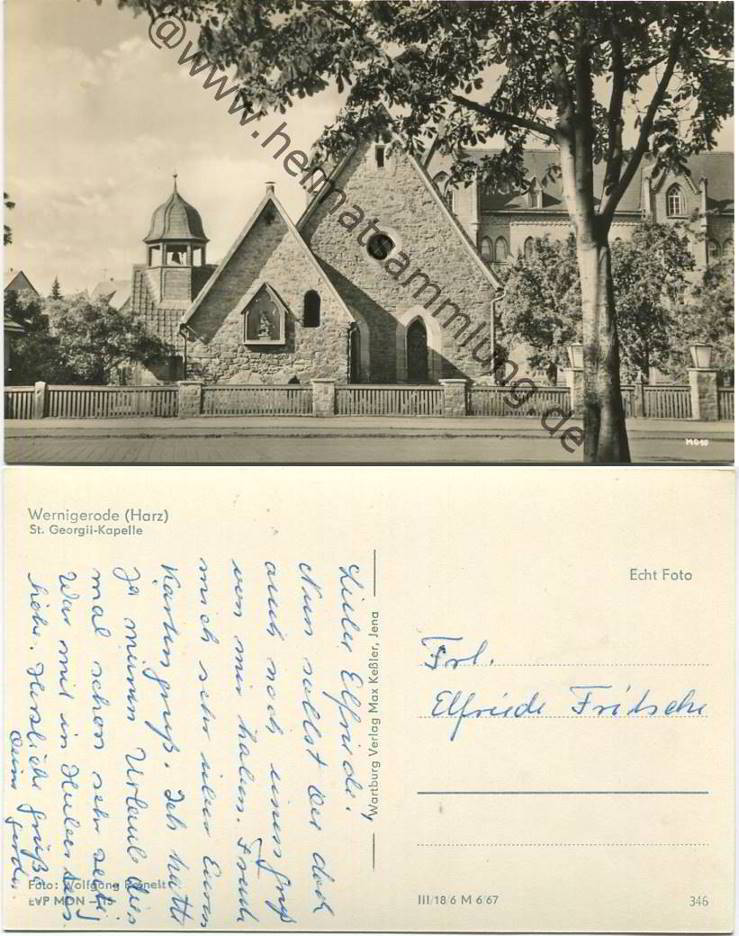 @www.heimatsammlung.de
M 6 10
Wernigerode (Harz)
St. Georgii-Kapelle
Liebe Elfriede!
Nun sollst Du doch
auch noch einen Gruß
von mir haben. Freute
mich sehr über Euren
Kartengruß. Ich hatte
ja meinen Urlaub dies
mal schon sehr zeitig
War mit in
Liebe. Herzliche Grüße
Deine Gerda.
Foto: Wolfgang Reinelt
EVP MDN
Wartburg Verlag Max Keßler, Jena
Echt Foto
Frl.
Elfriede Fritsche
III/18/6 M 6/67
346